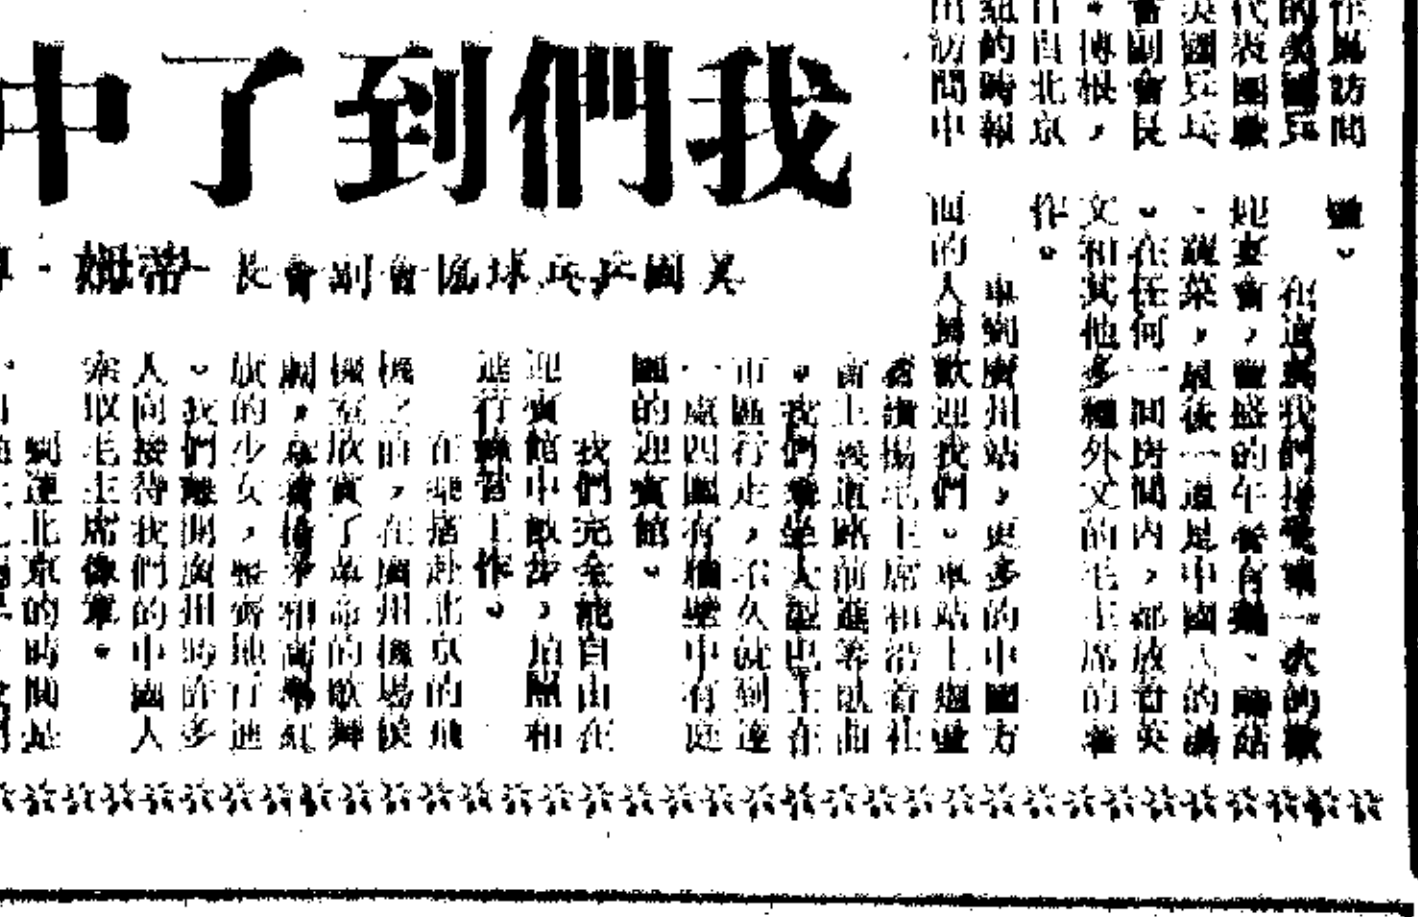 作風訪問
的美國乒
代表團歡
美國乒乓
會副會長
。博根，
日自北京
紐約時報
出訪問中
我們到了中
美國乒乓球協會副會長 蒂姆·
。
在這裏我們接受第一次的歡
迎宴會，豐盛的午餐有、蘑菇
、蔬菜，最後一道是中國式的湯
。在任何一間房間內，都放着英
文和其他多種外文的毛主席的著
作。
車到廣州站，更多的中國方
面的人歡迎我們。車站上迴盪
着讚揚毛主席和沿着社
會主義道路前進等歌曲
。我們乘坐大型巴士在
市區行走，不久就到達
一處四圍有牆壁中有庭
園的迎賓館。
我們完全能自由在
迎賓館中散步，拍照和
進行練習工作。
在乘搭赴北京的飛
機之前，在廣州機場候
機室欣賞了革命的歌舞
劇，和高舉紅
旗的少女，整齊地行進
。我們離開廣州時許多
人向接待我們的中國人
索取毛主席像章。
到達北京的時間是